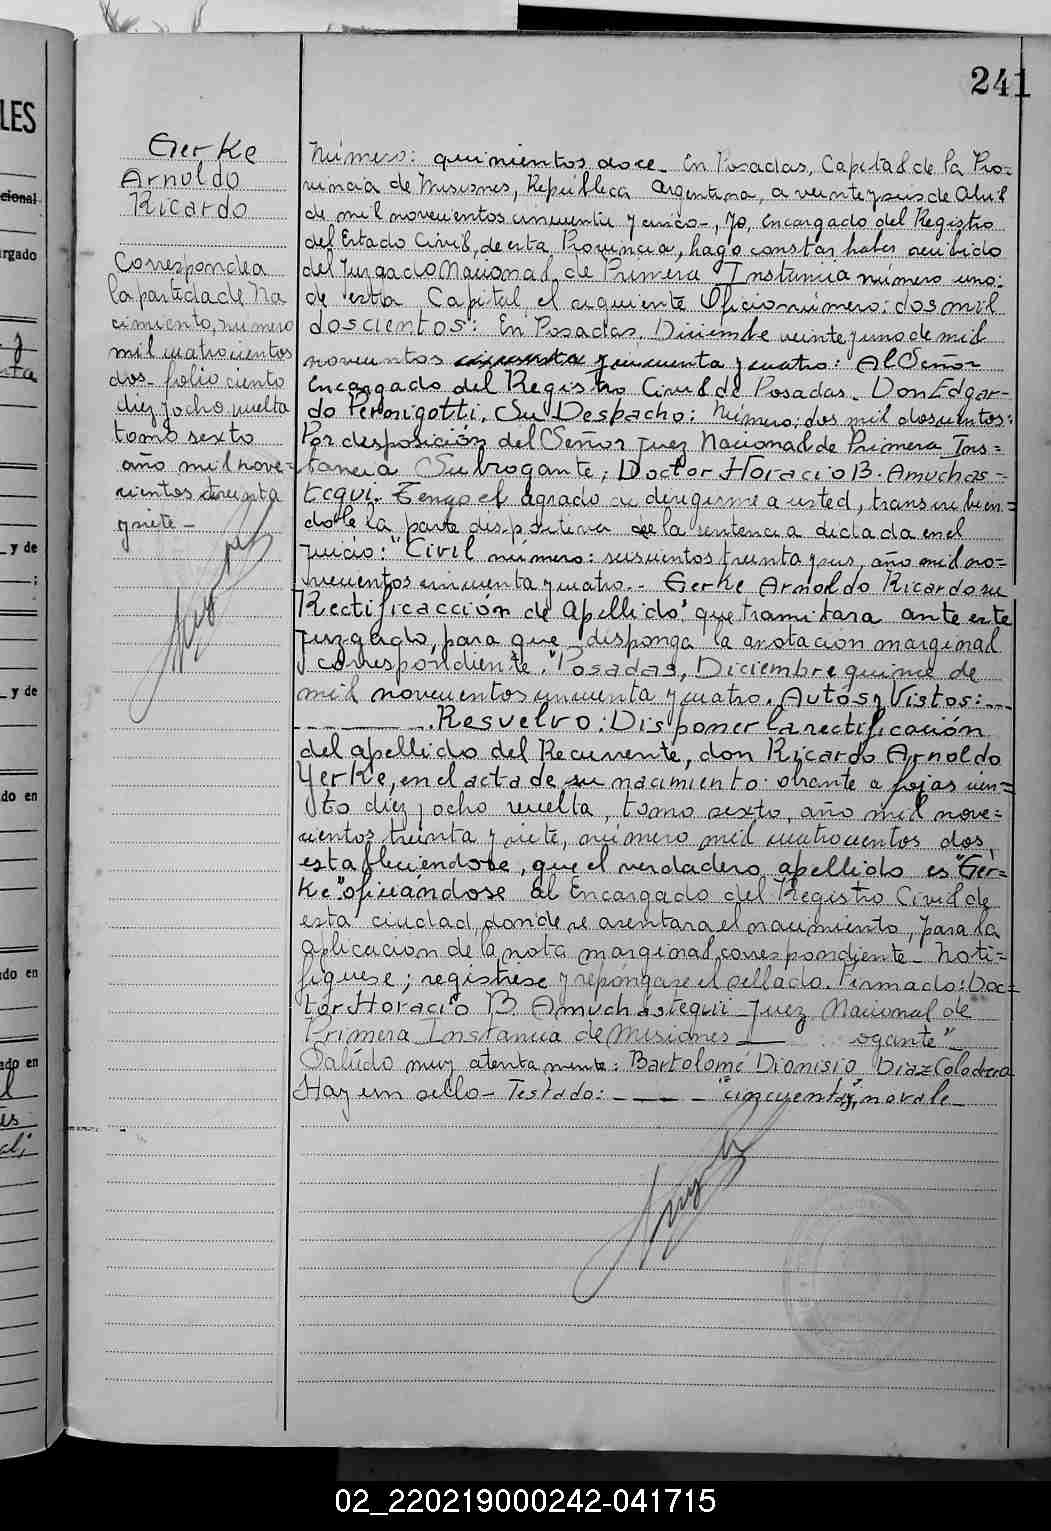 241
LES
cional
argado
y de
y de
do en
ado en
ado en
Gerke
Arnoldo
Ricardo
Corresponde a
la partida de Na
cimiento, número
mil cuatrocientos
dos - folio ciento
diez y ocho vuelta
tomo sexto
año mil nove=
cientos treinta
y siete -
Número: quinientos doce - En Posadas, Capital de la Pro=
vincia de Misiones, República Argentina, a veinte y seis de Abril
de mil novecientos cincuenta y cinco -, Yo, Encargado del Registro
del Estado Civil, de esta Provincia, hago constar haber recibido
del Juzgado Nacional de Primera Instancia número uno:
de esta Capital el siguiente Oficio número: dos mil
doscientos: En Posadas, Diciembre veinte y uno de mil
novecientos cincuenta y cuatro: Al Señor
Encargado del Registro Civil de Posadas. Don Edgar-
do Peronigotti. Su Despacho: Número; dos mil doscientos:
Por desposición del Señor Juez Nacional de Primera Ins=
tancia Subrogante; Doctor Horacio B. Amuchas-
tegui. Tengo el agrado de dirigirme a usted, transcribien=
dole la parte dispositiva de la sentencia dictada en el
juicio: "Civil número: seiscientos treinta y seis, año mil no=
vecientos cincuenta y cuatro. - Gerke Arnoldo Ricardo su
Rectificacción de Apellido" que tramitara ante este
Juzgado, para que disponga la anotación marginal
correspondiente. "Posadas, Diciembre quince de
mil novecientos cincuenta y cuatro. Autos y Vistos: ---
. Resuelvo: Disponer la rectificación
del apellido del Recurrente, don Ricardo Arnoldo
Yerke, en el acta de su nacimiento obrante a fojas cien=
to diez y ocho vuelta, tomo sexto, año mil nove=
cientos treinta y siete, número mil cuatrocientos dos,
estableciendose, que el verdadero apellido es "Ger=
ke" oficiandose al Encargado del Registro Civil de
esta ciudad, donde se asentara el nacimiento, para la
aplicacion de la nota marginal correspondiente - Noti=
fiquese; registrese y repóngase el sellado. Firmado: Doc=
tor Horacio B. Amuchastegui Juez Nacional de
Primera Instancia de Misiones ogante" -
Saludo muy atentamente: Bartolomé Dionisio Diaz Colodrero
Hay un sello - Testado: - - - - "cincuenta y", no vale -
02_220219000242-041715